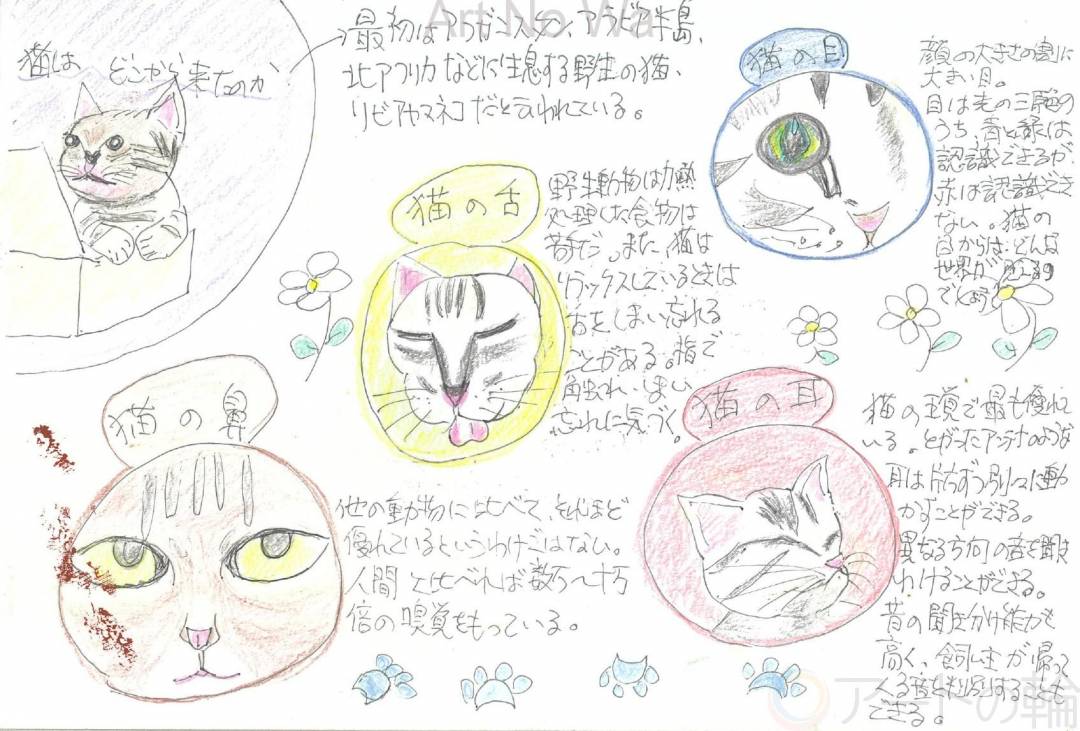 Art No Wa
猫は どこから来たのか
最初はアフガニスタン、アラビア半島、
北アフリカなどに生息する野生の猫、
リビアヤマネコだと云われている。
猫の目
顔の大きさの割に
大きい目。
目は光の三原色の
うち、青と緑は
認識できるが、
赤は認識でき
ない。猫の
目からは、どんな
世界が
でしょう
猫の舌
野生動物は加熱
処理した食物は
苦手だ。また、猫は
リラックスしているときは
舌をしまい忘れる
ことがある。指で
触れ、しまい
忘れに気づく。
猫の鼻
他の動物に比べて、それほど
優れているというわけではない。
人間と比べれば数万〜十万
倍の嗅覚をもっている。
猫の耳
猫の聴覚で最も優れて
いる。とがったアンテナのような
耳は片方ずつ別々に動
かすことができる。
異なる方向の音を聞き
わけることができる。
音の聞き分け能力も
高く、飼い主が帰って
くる音を判別することも
できる。
アートの輪